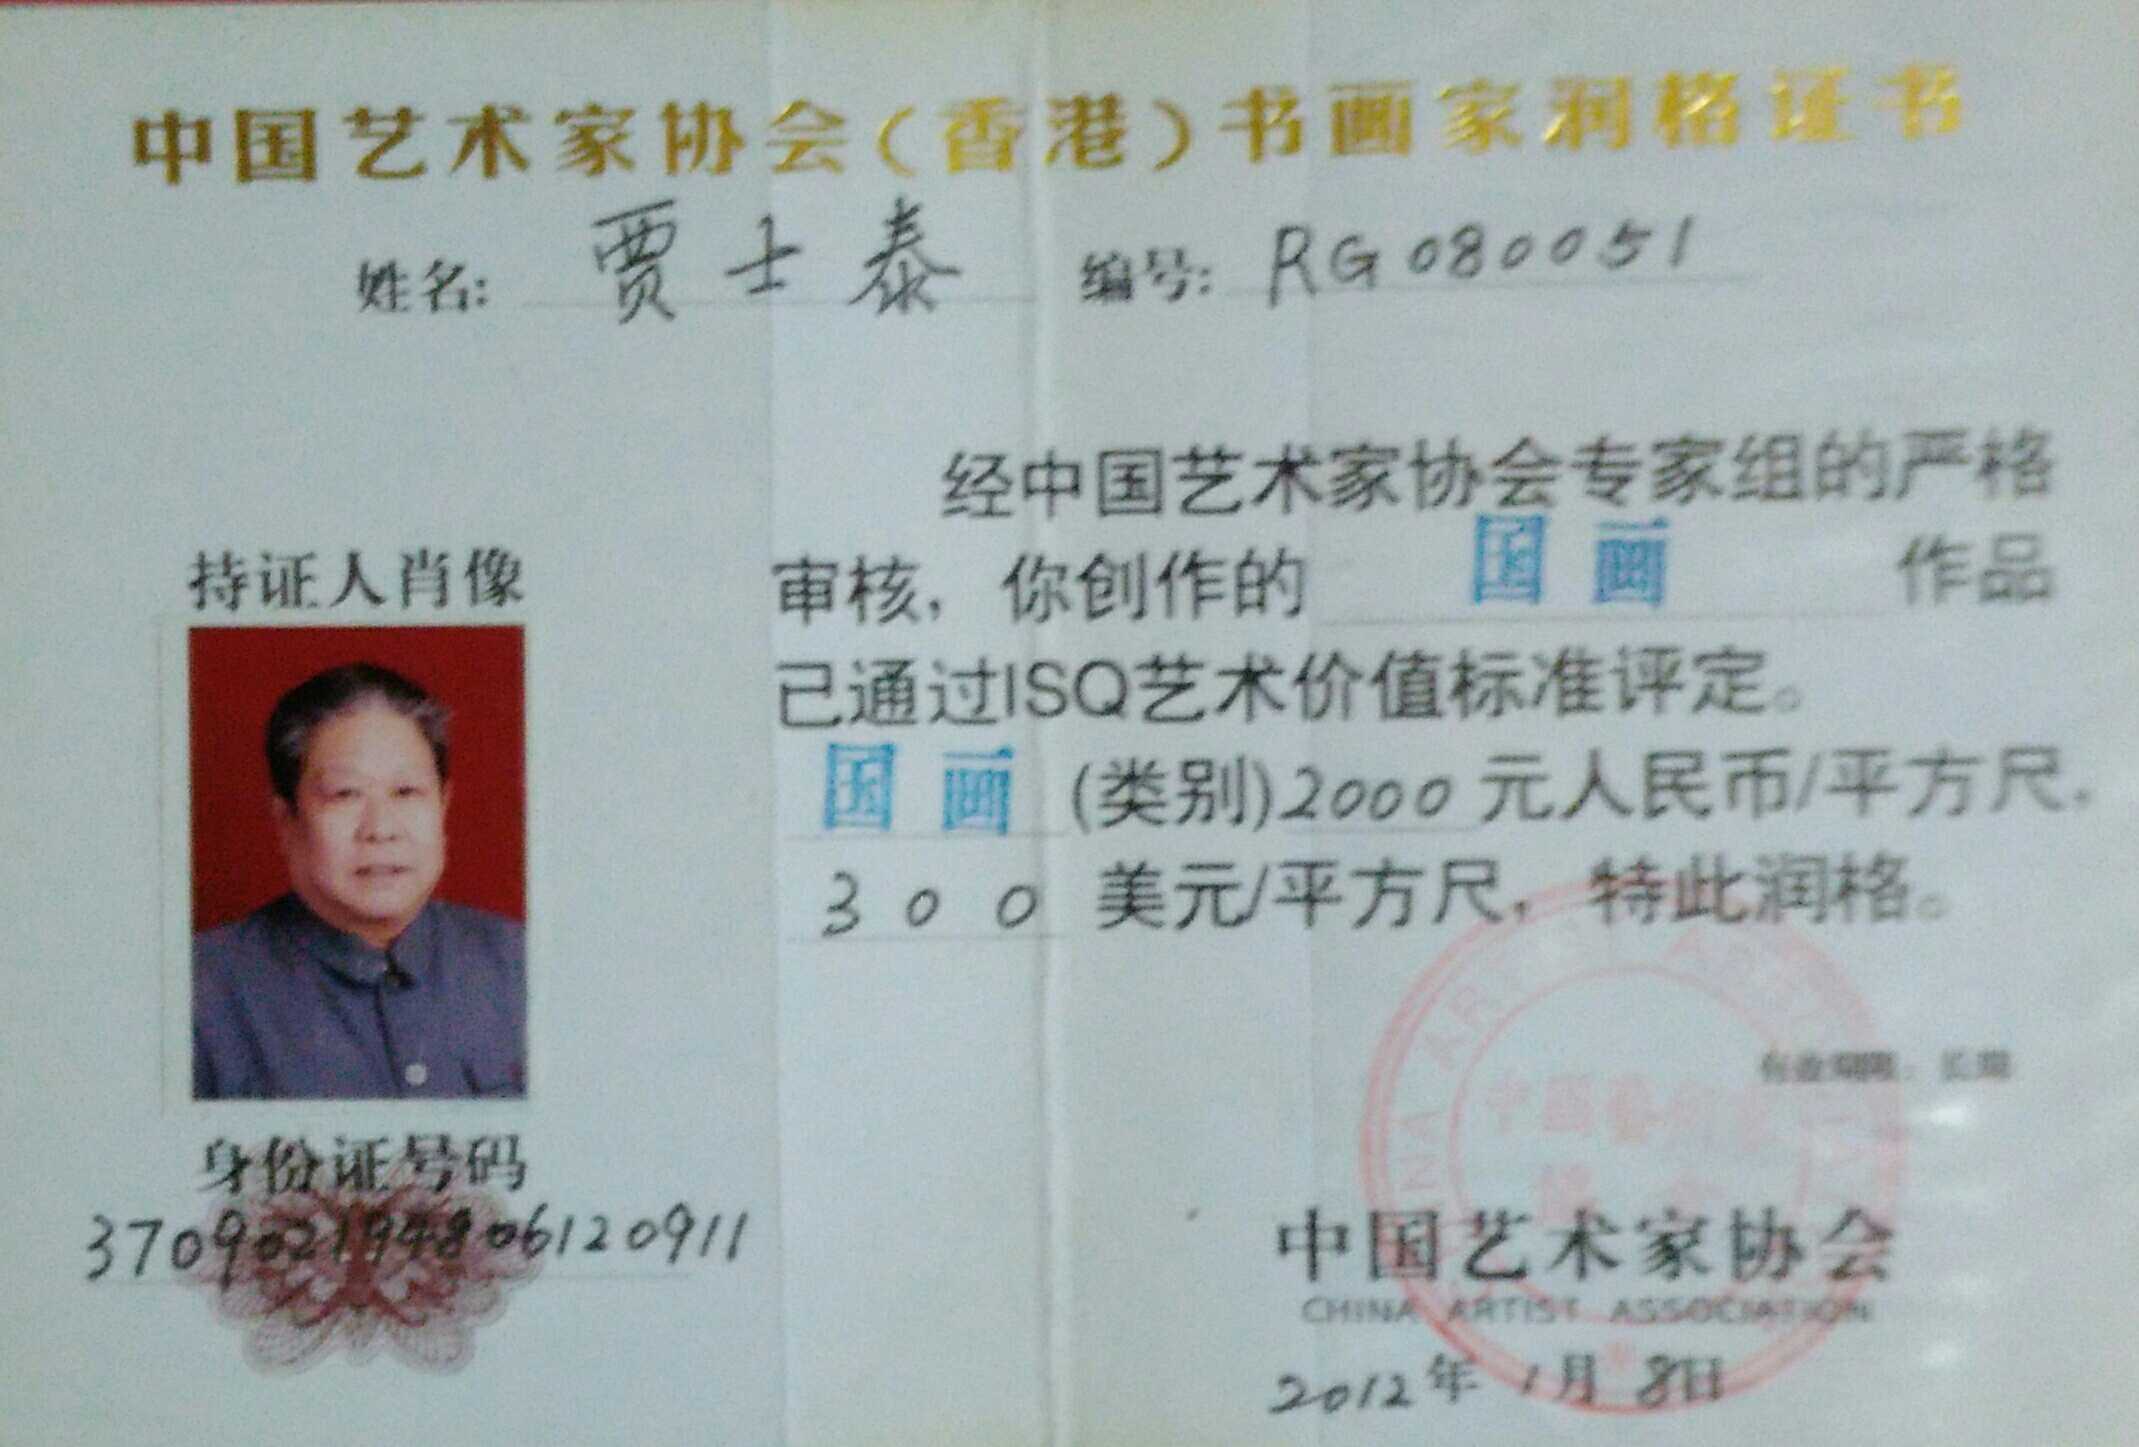 中国艺术家协会(香港)书画家润格证书
姓名: 贾士泰 编号: RG080051
经中国艺术家协会专家组的严格
审核, 你创作的 国画 作品
已通过ISQ艺术价值标准评定。
国画 (类别) 2000 元人民币/平方尺,
300 美元/平方尺, 特此润格。
持证人肖像
身份证号码
370902194806120911
有效期限: 长期
中国艺术家协会
CHINA ARTIST ASSOCIATION
2012年1月8日